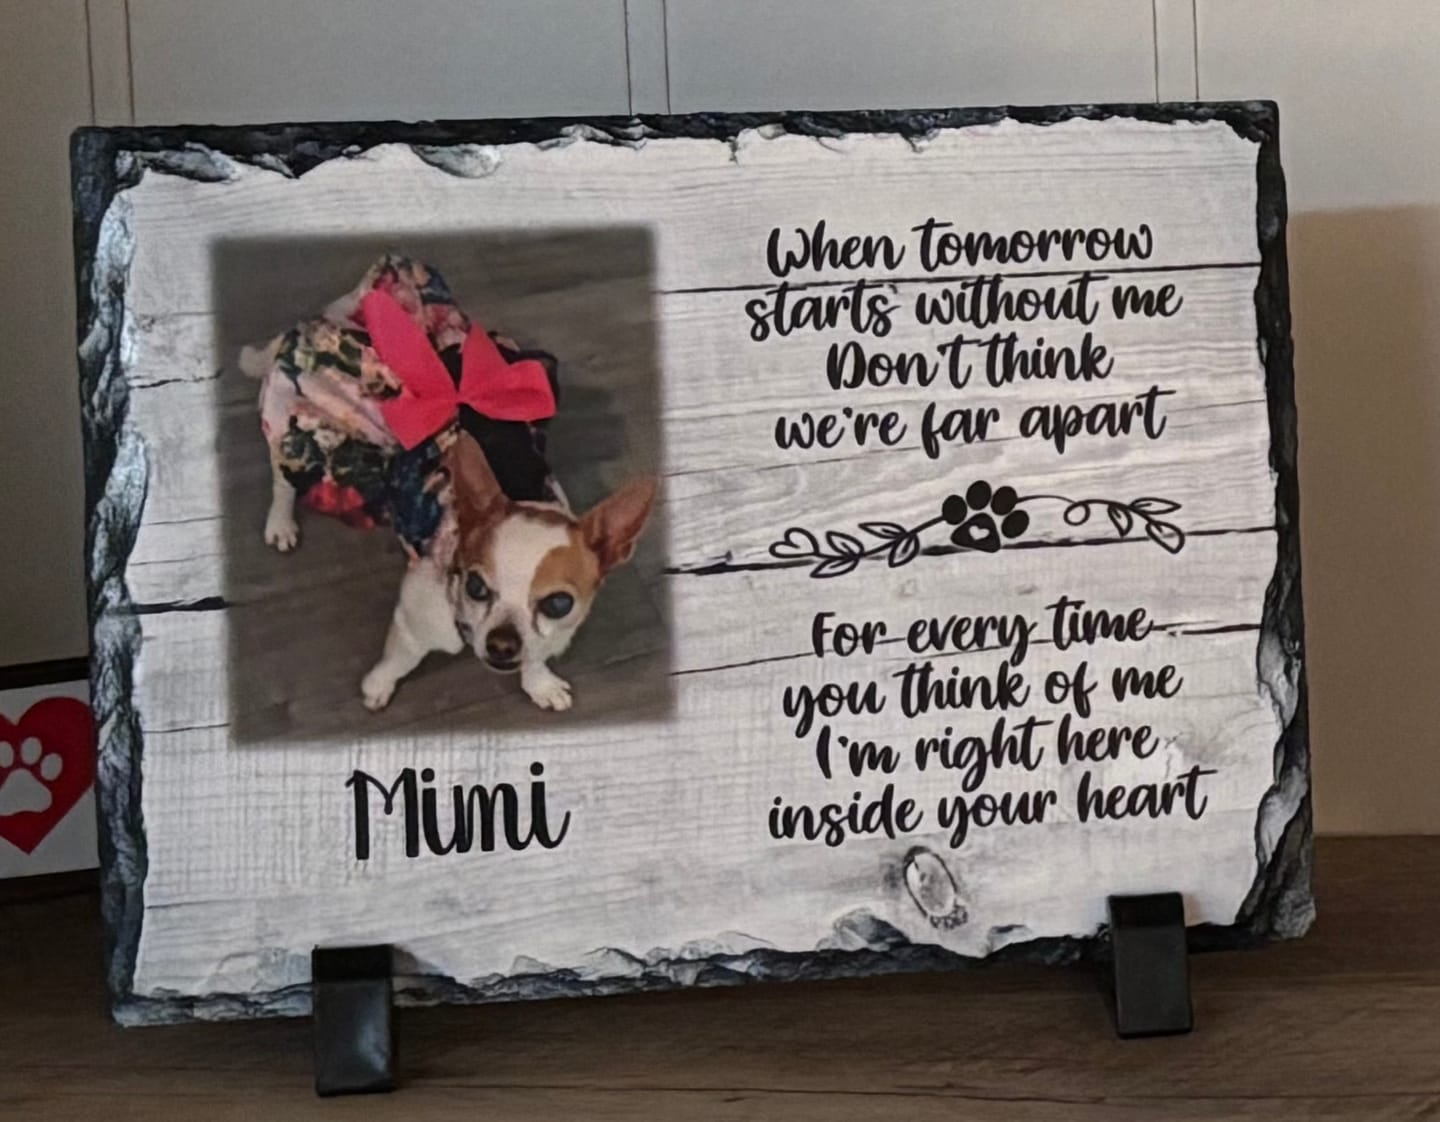 When tomorrow
starts without me
Don't think
we're far apart
For every time
you think of me
I'm right here
inside your heart
Mimi